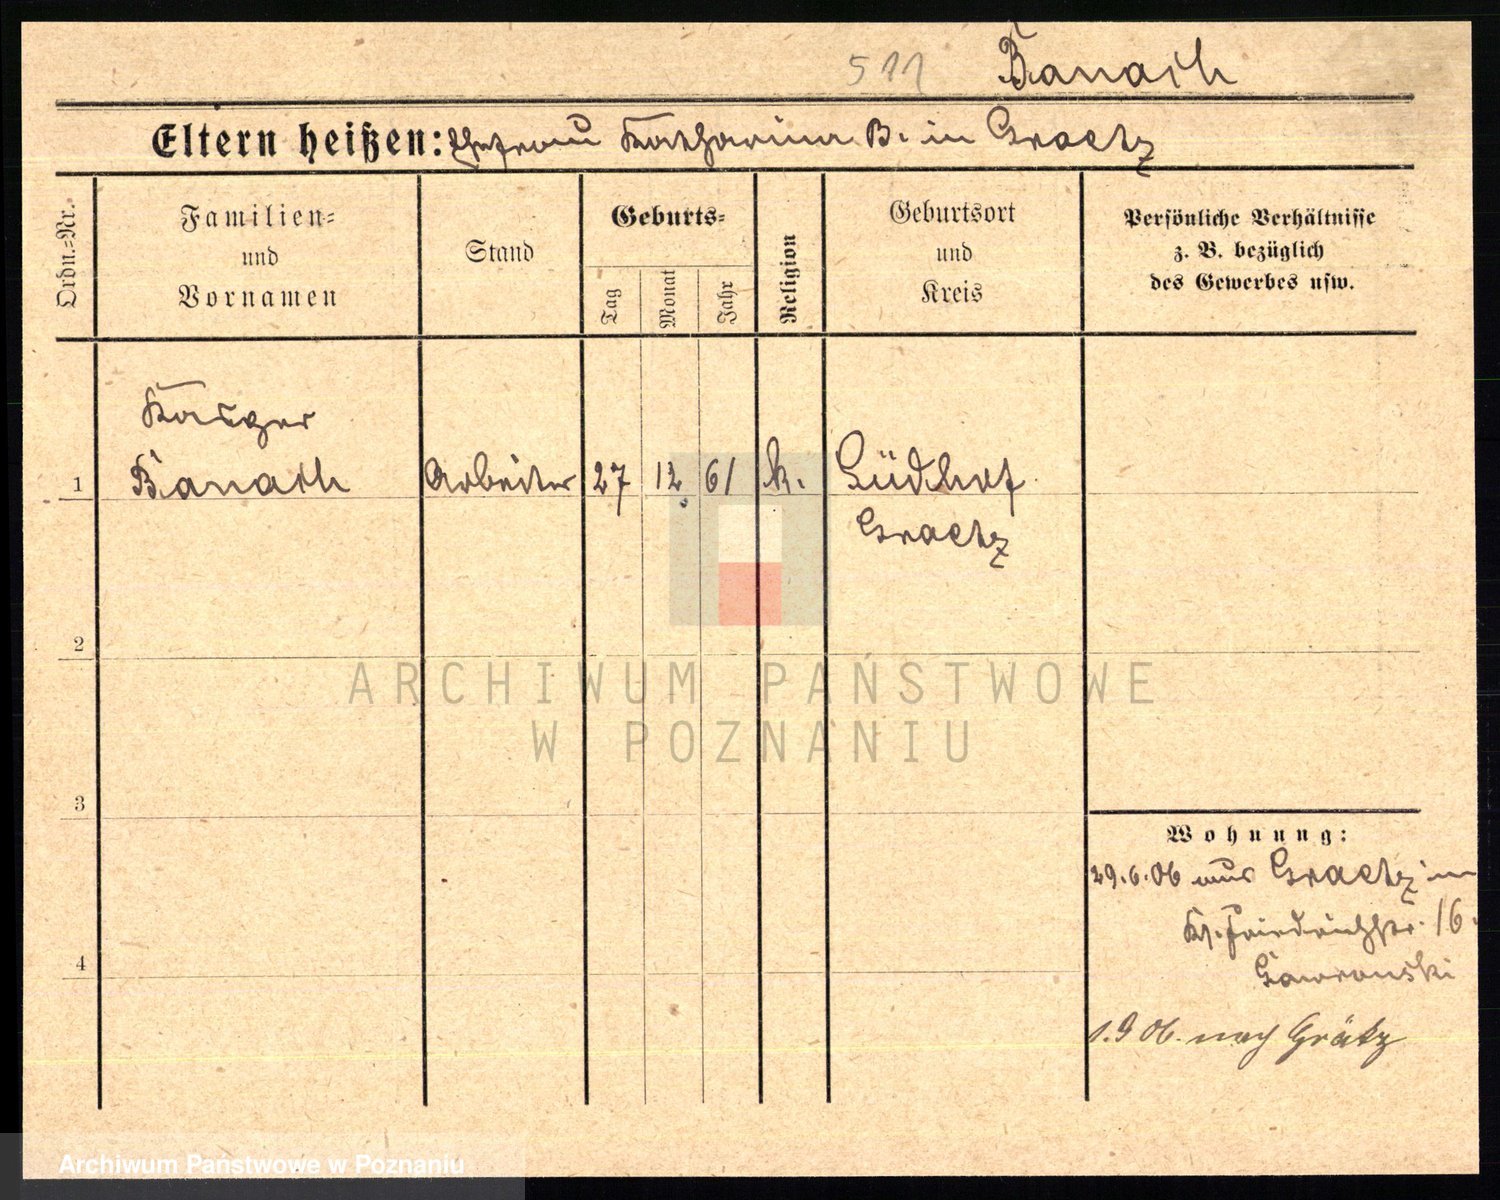 511 Banach
Eltern heißen: Ehefrau Katharina B. in Graetz
Ordn.=Nr.
Familien=
und
Vornamen
Stand
Geburts=
Tag
Monat
Jahr
Religion
Geburtsort
und
Kreis
Persönliche Verhältnisse
z. B. bezüglich
des Gewerbes usw.
1 Banach Arbeiter 27 12 61 k.
Graetz
2
3
4
Wohnung:
29.6.06 aus Graetz in
Kl. Friedrichstr. 16.
Gawronski
1.9.06. nach Grätz
ARCHIWUM PAŃSTWOWE
W POZNANIU
Archiwum Państwowe w Poznaniu